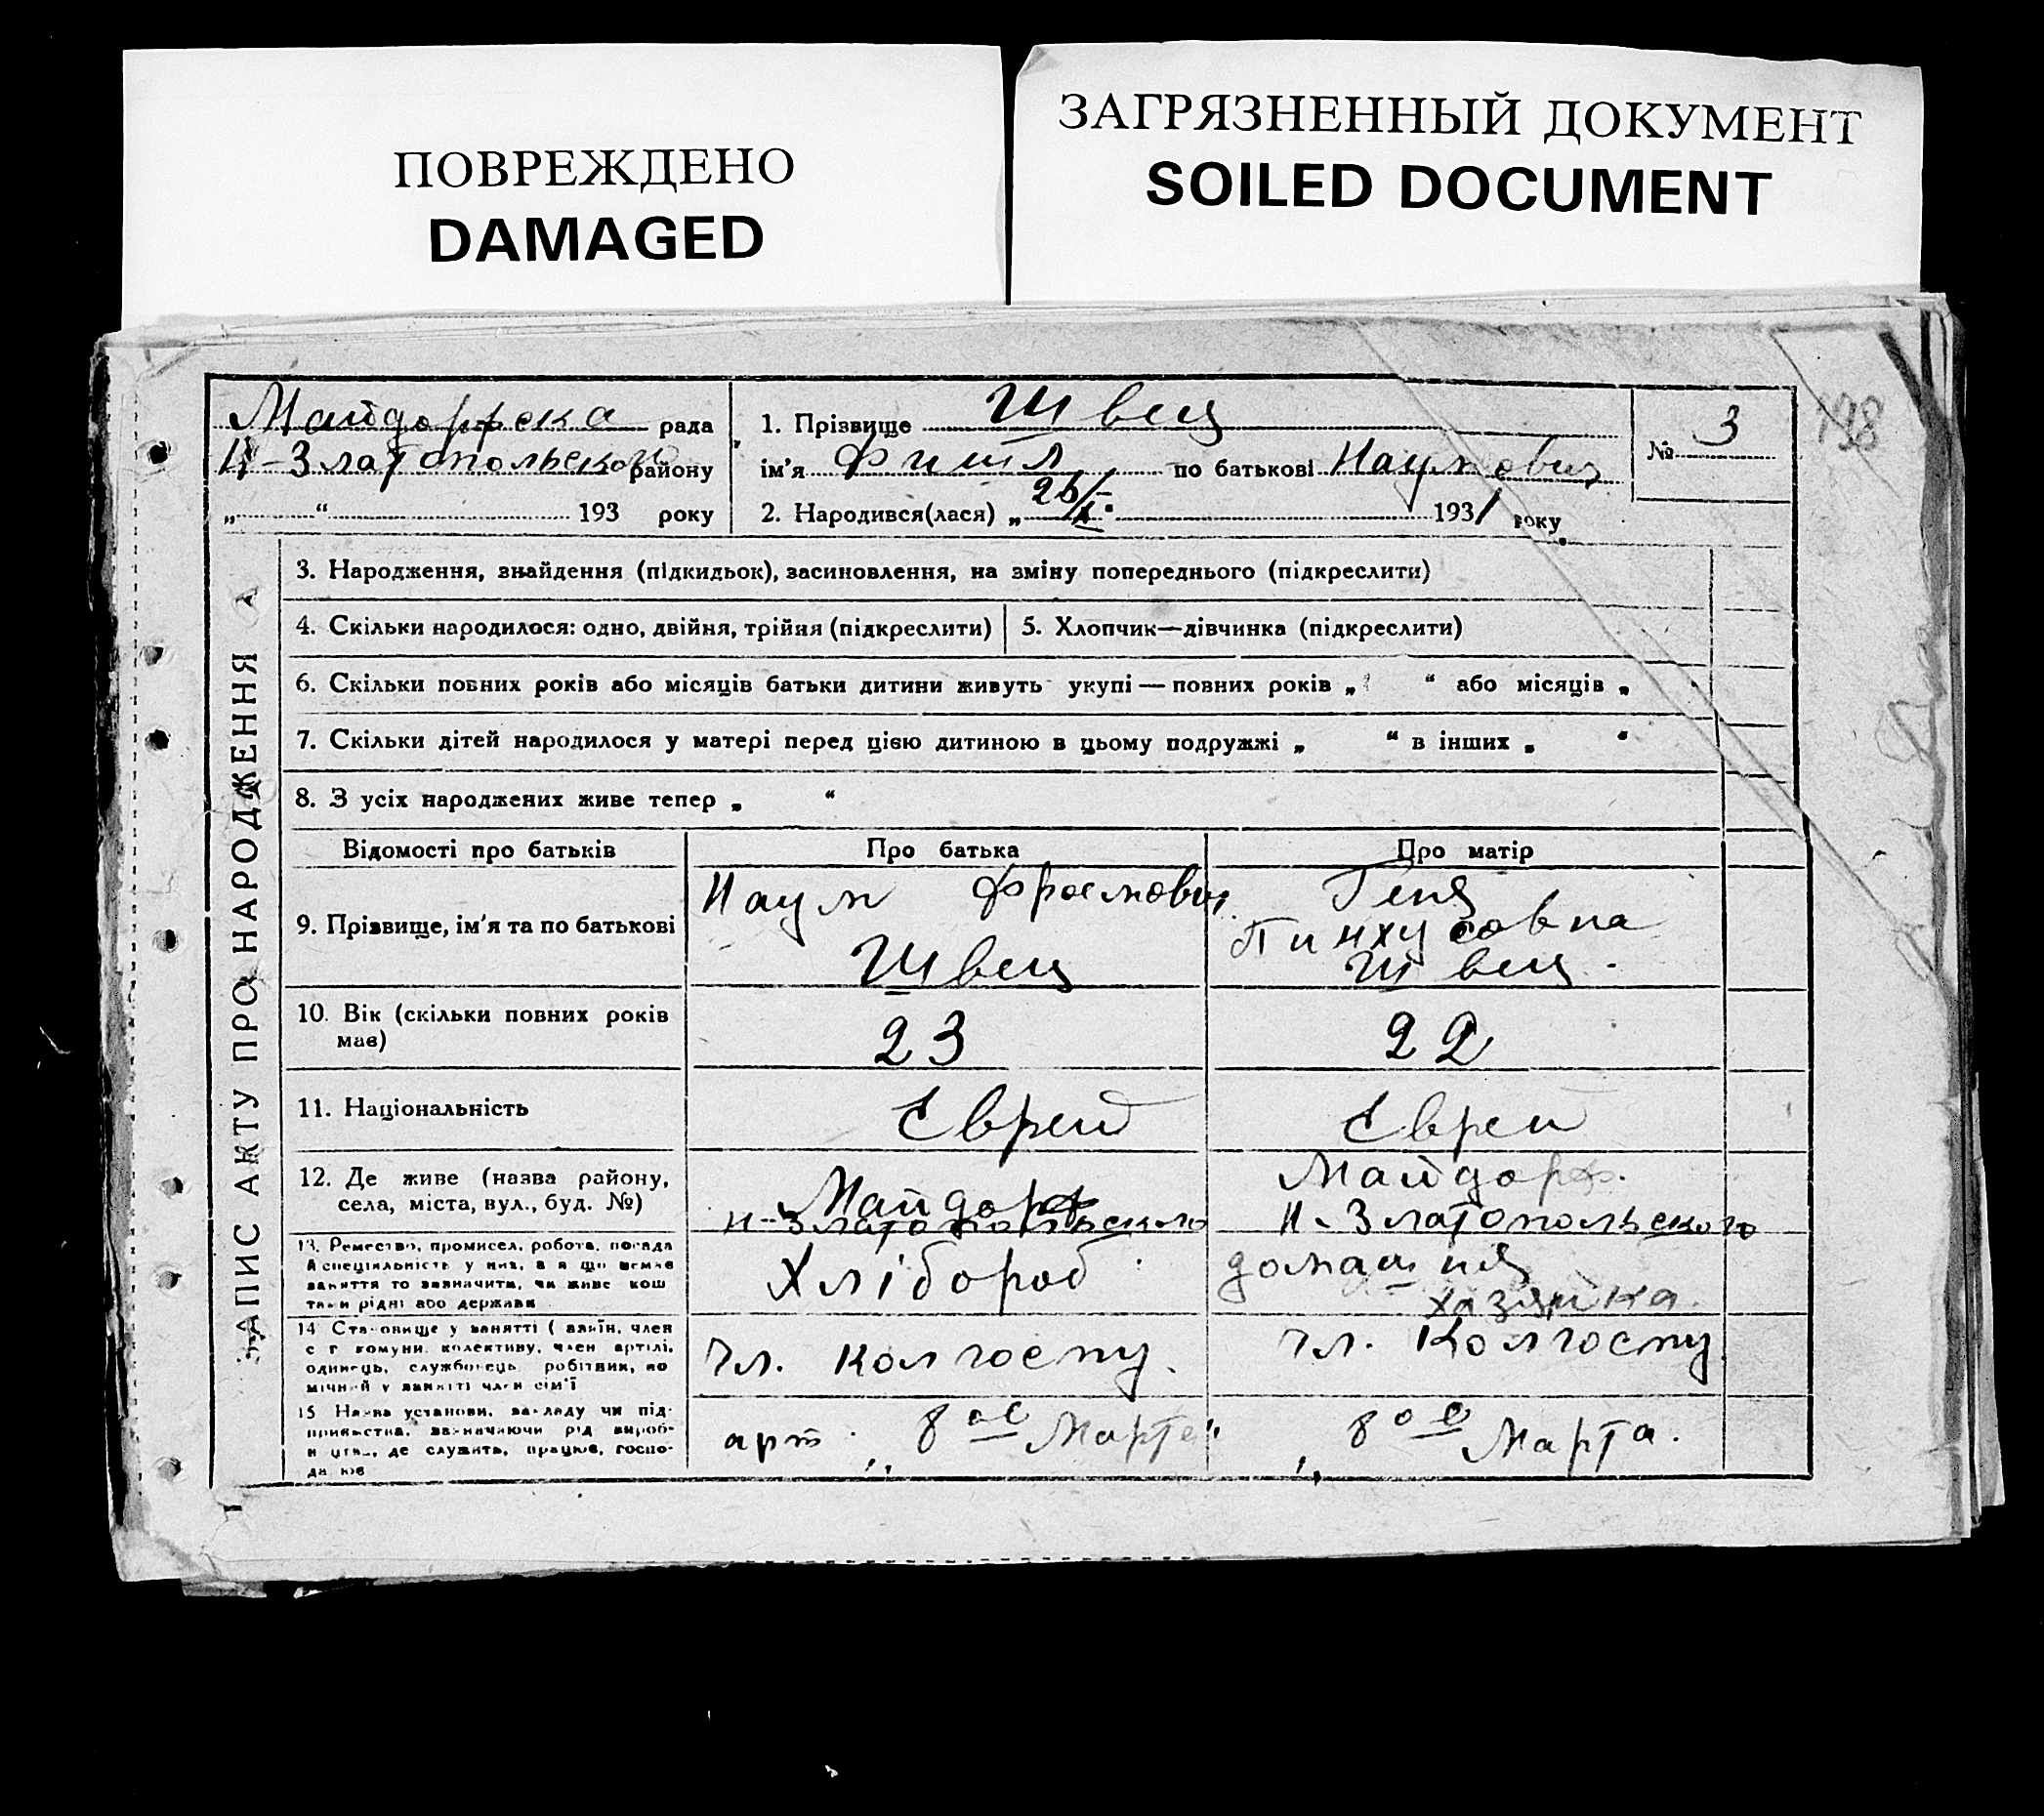 ПОВРЕЖДЕНО
DAMAGED
ЗАГРЯЗНЕННЫЙ ДОКУМЕНТ
SOILED DOCUMENT
198
Майдорфска рада
Н-Златопольского району
„ “ 193 року
1. Прізвище Швец
ім'я Фишл по батькові Наумович
2. Народився(лася) „26/X. 1931 року
№ 3
ЗАПИС АКТУ ПРО НАРОДЖЕННЯ А
3. Народження, знайдення (підкидьок), засиновлення, на зміну попереднього (підкреслити)
4. Скільки народилося: одно, двійня, трійня (підкреслити)
5. Хлопчик—дівчинка (підкреслити)
6. Скільки повних років або місяців батьки дитини живуть укупі — повних років „ “ або місяців „
7. Скільки дітей народилося у матері перед цією дитиною в цьому подружжі „ “ в інших „ “
8. З усіх народжених живе тепер „ “
Відомості про батьків
Про батька
Про матір
9. Прізвище, ім'я та по батькові
Наум
Швец
Геня
Пинхусовна
Швец.
10. Вік (скільки повних років
має)
23
22
11. Національність
Єврей
Єврей
12. Де живе (назва району,
села, міста, вул., буд. №)
Майдорф
Н-Златопольского
Майдорф.
Н-Златопольского
13. Ремество, промисел, робота, посада
й спеціяльність у них, а як що немає
заняття то зазначити, чи живе кош
тами рідні або держави
Хлібороб
домашня
хазяйка
14 Становище у занятті (хазяїн, член
с г комуни, колективу, член артілі,
одинець, службовець, робітник, по
мічний у занятті член сім'ї
Чл. Колгоспу.
Чл. Колгоспу.
15 Назва установи, закладу чи під-
приємства, зазначаючи рід вироб-
ництва, де служить, працює, госпо-
дарює
арт. „8ое Марта“
„8ое Марта.